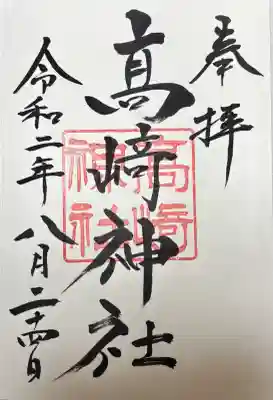 奉拝
髙﨑神社
高﨑神社
令和二年八月二十四日